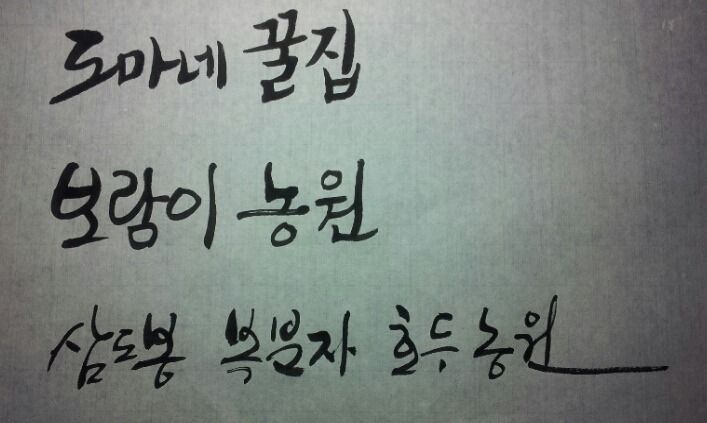 도마네 꿀집
보람이 농원
삼도봉 복분자 호두농원